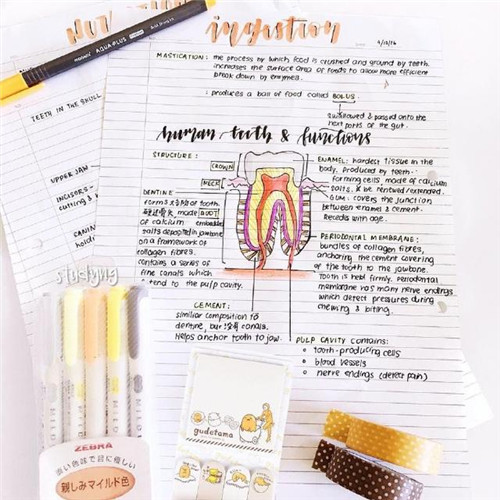 ingestion
9/12/16
MASTICATION: the process by which food is crushed and ground by teeth.
increases the surface area of foods to allow more efficient
break down by enzymes.
: produces a ball of food called BOLUS.
swallowed & passed onto the
next parts of the gut.
human teeth & functions
STRUCTURE:
CROWN
NECK
ROOT
DENTINE
forms of tooth.
made
of calcium
salts deposited
on a framework of
collagen fibres.
contains a series of
fine canals which
extend to the pulp cavity.
embedded
in jawbone
ENAMEL: hardest tissue in the
body, produced by teeth-
forming cells, made of calcium
salts, renewed/extended.
GUM: covers the junction
between enamel & cement.
Recedes with age.
PERIODONTAL MEMBRANE:
bundles of collagen fibres,
anchoring the cement covering
of the tooth to the jawbone.
Tooth is held firmly. Periodontal
membrane has many nerve endings
which detect pressures during
chewing & biting.
CEMENT:
similar composition to
dentine, but canals.
Helps anchor tooth to jaw.
PULP CAVITY CONTAINS:
tooth-producing cells
blood vessels
nerve endings (detect pain)
TEETH IN THE SKULL
UPPER JAW
INCISORS-
cutting &
CANIN
holdi
studying
AQUA PLUS
MILD
MILD
MILD
MILD
ZEBRA
赤い色味で目に優しい
親しみマイルド色
gudetama